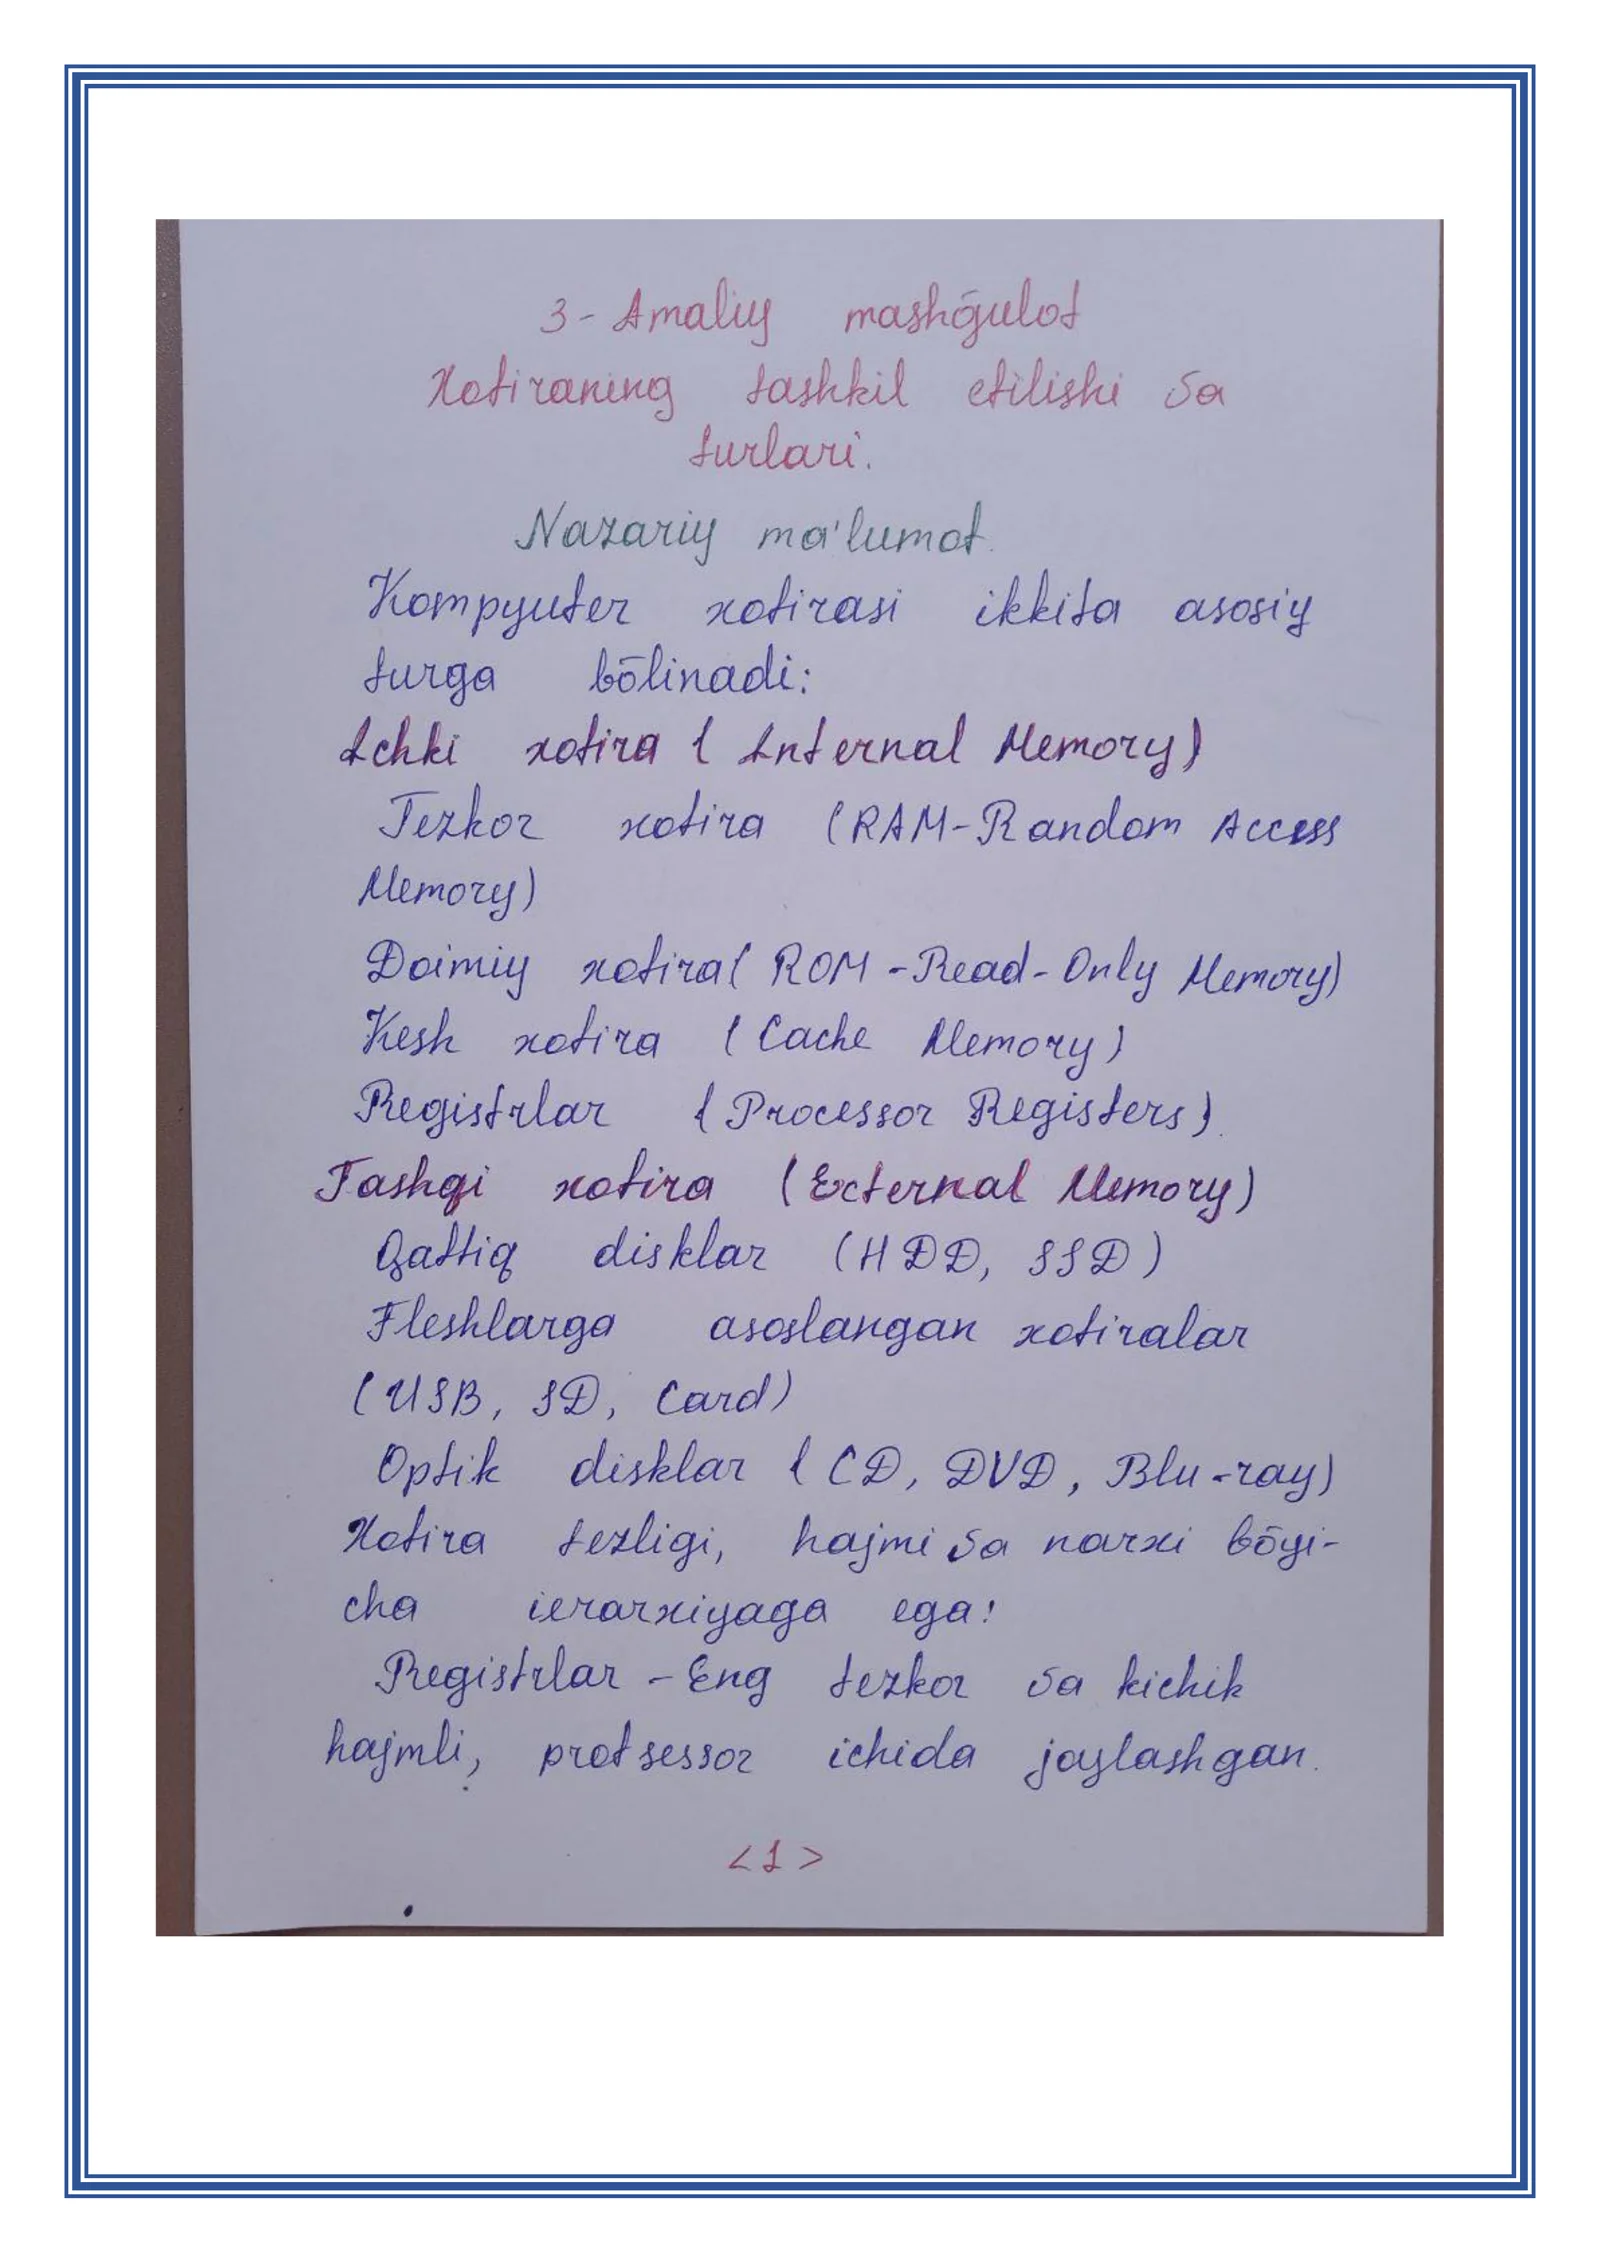 3-Amaliy mashōgulot
Xotiraning tashkil etilishi va
turlari.
Nazariy ma'lumot.
Kompyuter xotirasi ikkita asosiy
turga bōlinadi:
Ichki xotira (Internal Memory)
Tezkor xotira (RAM-Random Access
Memory)
Doimiy xotira (ROM-Read-Only Memory)
Kesh xotira (Cache Memory)
Registrlar (Processor Registers).
Tashqi xotira (External Memory)
Qattiq disklar (HDD, SSD)
Fleshlarga asoslangan xotiralar
(USB, SD, Card)
Optik disklar (CD, DVD, Blu-ray)
Xotira tezligi, hajmi va narxi bōyi-
cha ierarxiyaga ega:
Registrlar - Eng tezkor va kichik
hajmli, protsessor ichida joylashgan.
<1>